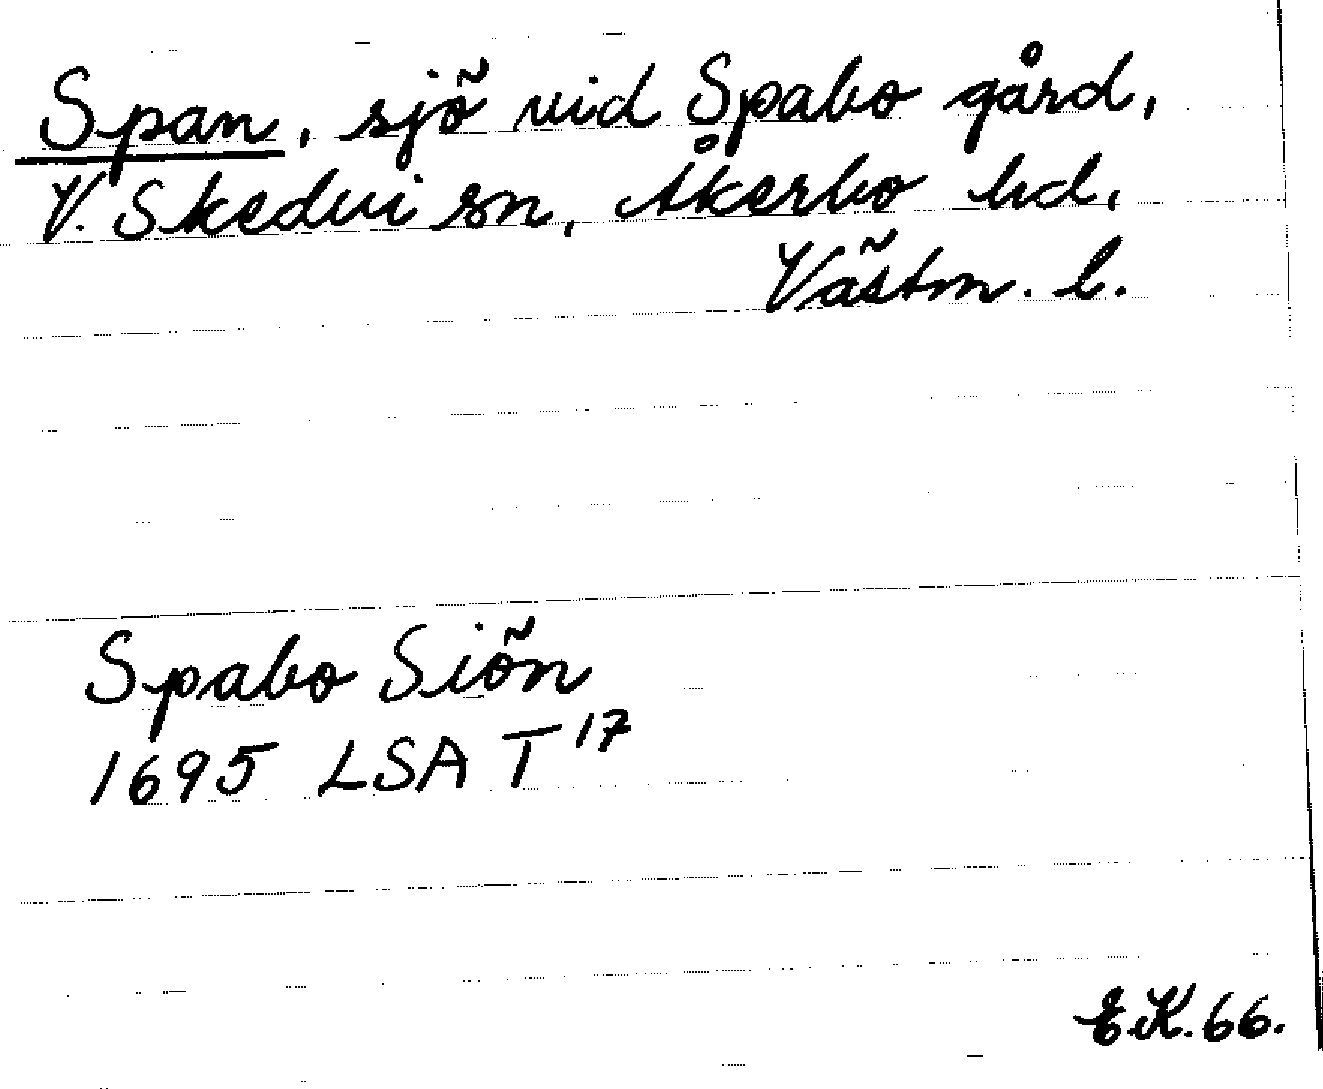 Span, sjö vid Spabo gård,
V. Skedvi sn, Åkerbo hd,
Västm. l.
Spabo Siön
1695 LSA T 17
E.K. 66.